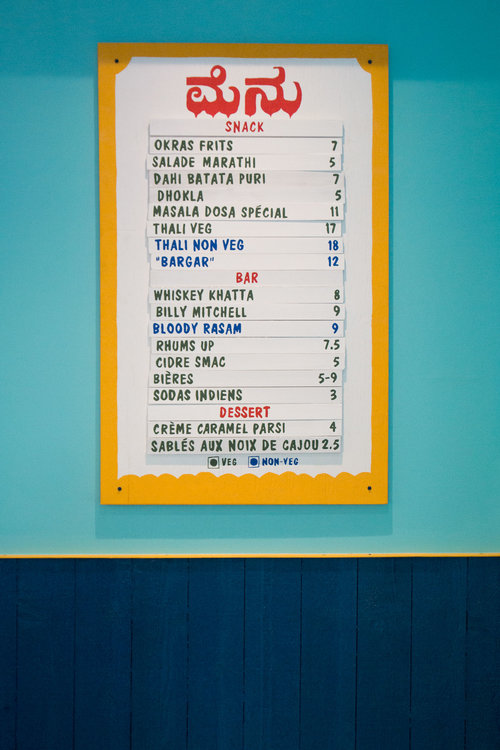 ಮೆನು
SNACK
OKRAS FRITS 7
SALADE MARATHI 5
DAHI BATATA PURI 7
DHOKLA 5
MASALA DOSA SPÉCIAL 11
THALI VEG 17
THALI NON VEG 18
"BARGAR" 12
BAR
WHISKEY KHATTA 8
BILLY MITCHELL 9
BLOODY RASAM 9
RHUMS UP 7.5
CIDRE SMAC 5
BIÈRES 5-9
SODAS INDIENS 3
DESSERT
CRÈME CARAMEL PARSI 4
SABLÉS AUX NOIX DE CAJOU 2.5
VEG NON-VEG